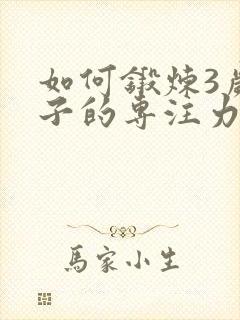 如何鍛煉3歲
子的專注力
馬家小生